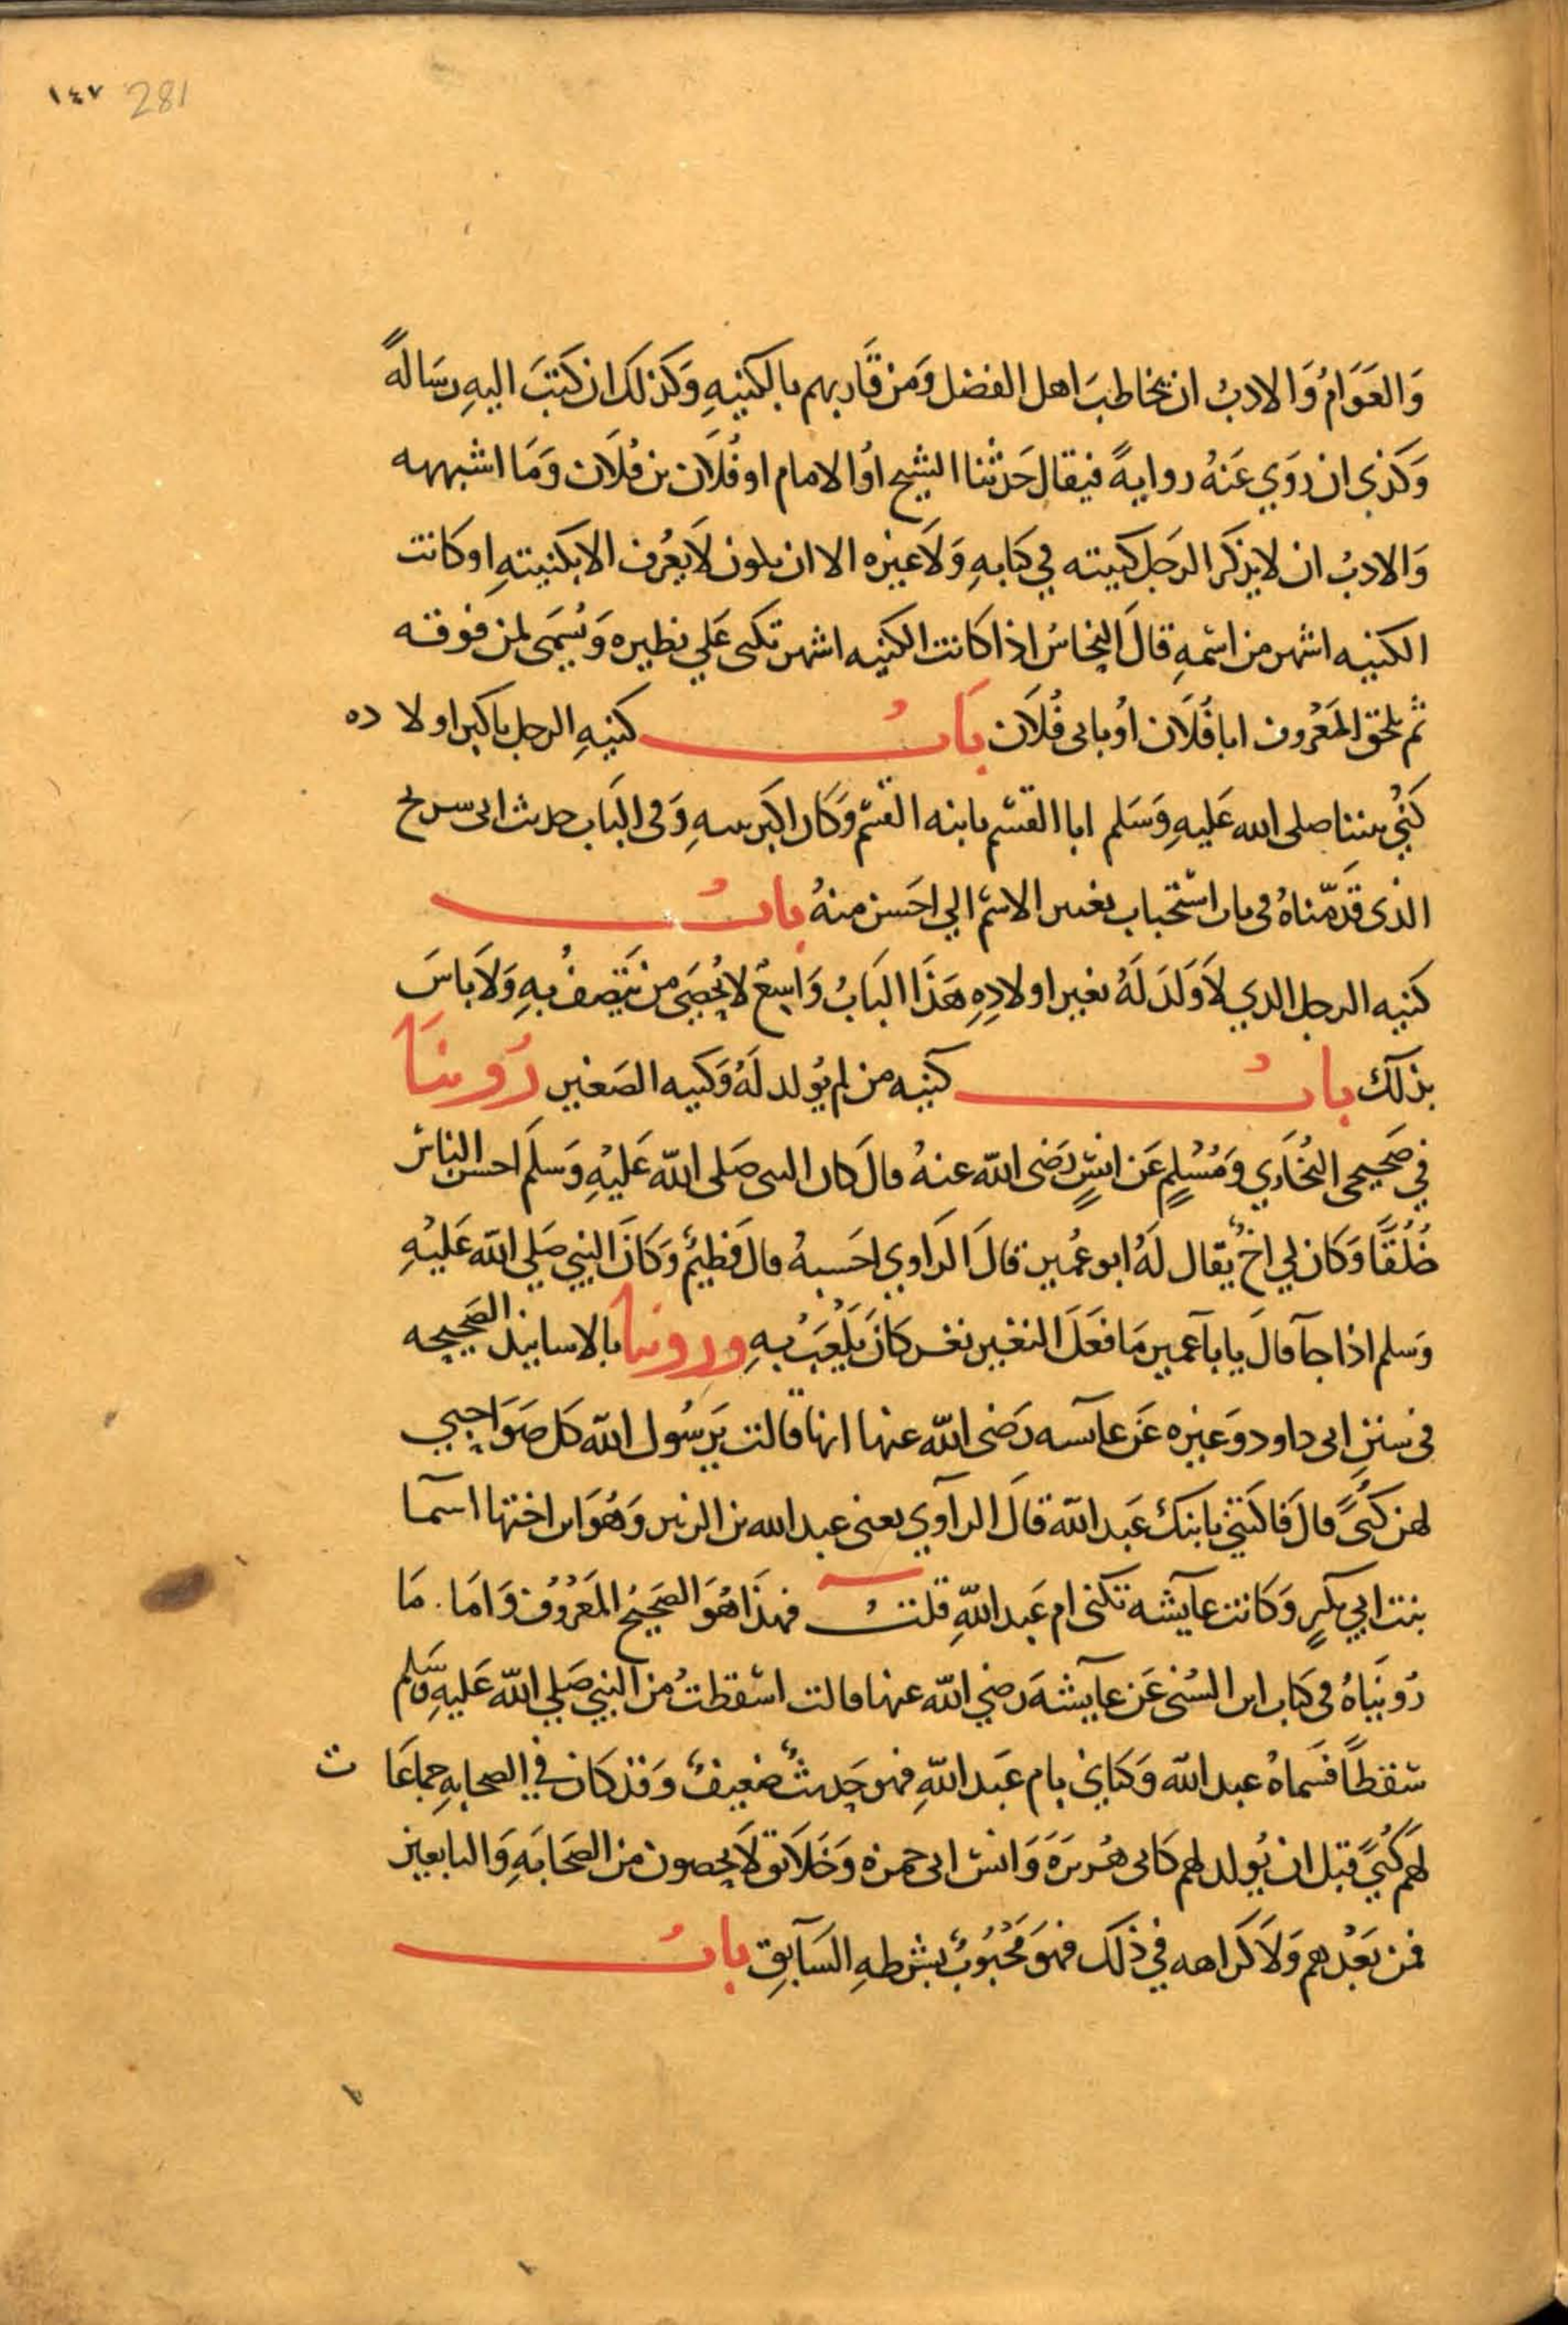 ١٤٧ 281
وَالعَوَامُ وَالادبُ ان يخاطبَ اهل الفضل وَمن قَاربهم بالكنيهِ وَكذلكَ ان كتبَ اليهِ رسَالةً
وَكذي ان روَي عَنهُ روايةً فيقال حَدثنا الشيح اوُ الامام او فُلَان بن فُلَان وَمَا اشبهه
وَالادبُ ان لا يذكر الرجَل كنيته في كتابهِ وَلَا غيره الا ان يكون لَا يعُرف الا بكنيتهِ او كانت
الكنيه اشهر من اسْمهِ قالَ النحاسُ اذا كانت الكنيه اشهر تكنى عَلي نظيره وَيُسَمى لمن فوقه
ثم يلحق المَعْروف ابا فُلَان اوُ بابى فُلَان بَابُ كنيهِ الرجل باكبر اولاده
كُنِّي نبينا صلى الله عَليهِ وَسَلم ابا القسم بابنه القسم وَكان اكبر بنيهِ وَفي البَاب حديث ابى سريح
الذى قدّمناهُ فى باب استحباب تغيير الاسْم الي احَسن منهُ بابُ
كنيه الرجل الدي لاَ وَلَدَ لَهُ بغير اولادِهِ هَذَا البَابُ وَاسِعٌ لا يُحصَى من يتصفُ بهِ وَلَا باسَ
بذلك بابُ كنيه من لم يوُلد لَهُ وَكنيه الصَغير رُوينَا
في صَحيحى البُخَاري وَمُسْلِمٍ عَن انسٍ رَضى الله عنهُ قالَ كان النبى صَلى الله عَليْهِ وَسَلمَ احسن الناس
خُلُقًا وَكان لي اخٌ يُقال لَهُ ابو عُمير قالَ الرَاوي احَسبهُ قال فَطيمٌ وَكَانَ النبي صَلي الله عَليْهِ
وَسلم اذا جآ قالَ يابآ عمير مَا فعَلَ النغير نغر كَانَ يَلْعَبُ بهِ وروينا بالاسانيد الصَحيحه
فى سننِ ابى داود وَغيره عَن عآيسه رَضى الله عنها انها قالت يَرسُول الله كل صَوَاحبي
لهن كُنًى قالَ فَاكتنى بابنك عَبد الله قالَ الرآوي يعنى عبد الله بن الزبير وَهُوَ ابن اختها اسمآ
بنت ابي بكرٍ وَكانت عآيشه تكنى ام عَبد اللهِ قلتُ فهذَا هُوَ الصَحيحُ المَعْرُوفُ وَامَا . مَا
رُوينَاهُ فى كتاب ابن السُنى عَن عآيشهَ رَضي الله عنها قالت اسْقطتُ من النبي صَلي الله عَليهِ وَسَلم
سقطاً فسَماهُ عبد الله وَكنانى بام عَبد اللهِ فهو حَديثٌ ضعيفٌ وَقد كان في الصحابهِ جماعَات
لهَم كُنًى قبل ان يُولد لهم كابى هُريرَةَ وَانس ابى حمزه وَخَلَائق لَا يحصون من الصَحَابَهِ وَالتابعين
فمن بَعْدهم وَلَا كرَاهه في ذلك فهوَ مَحْبُوبٌ بشرطهِ السَابقِ بابُ